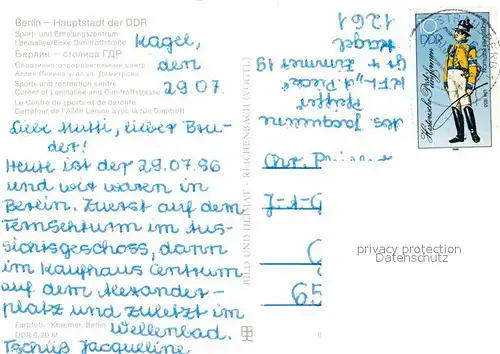 Berlin – Hauptstadt der DDR
Sport- und Erholungszentrum
Leninallee/Ecke Dimitroffstraße
Берлин – столица ГДР
Sports and recreation centre
Corner of Leninallee and Dimitroffstrasse
Le Centre de sports et de détente
Carrefour de l'Allée Lénine avec la rue Dimitroff
Kagel,
den
29.07.
Liebe Mutti, lieber Bru-
der!
Heute ist der 29.07.86
und wir waren in
Berlin. Zuerst auf dem
Fernsehturm im Aus-
sichtsgeschoss, dann
im Kaufhaus Centrum
auf dem Alexander-
platz und zuletzt im
Wellenbad.
Tschüß Jacqueline
Farbfoto: Kraemer, Berlin
BILD UND HEIMAT · REICHENBACH (VOGTL)
Abs. Jacqueline
Kagel
1261
10
DDR
Historische Postuniformen
Chr.
J-t-G
65
privacy protection
Datenschutz